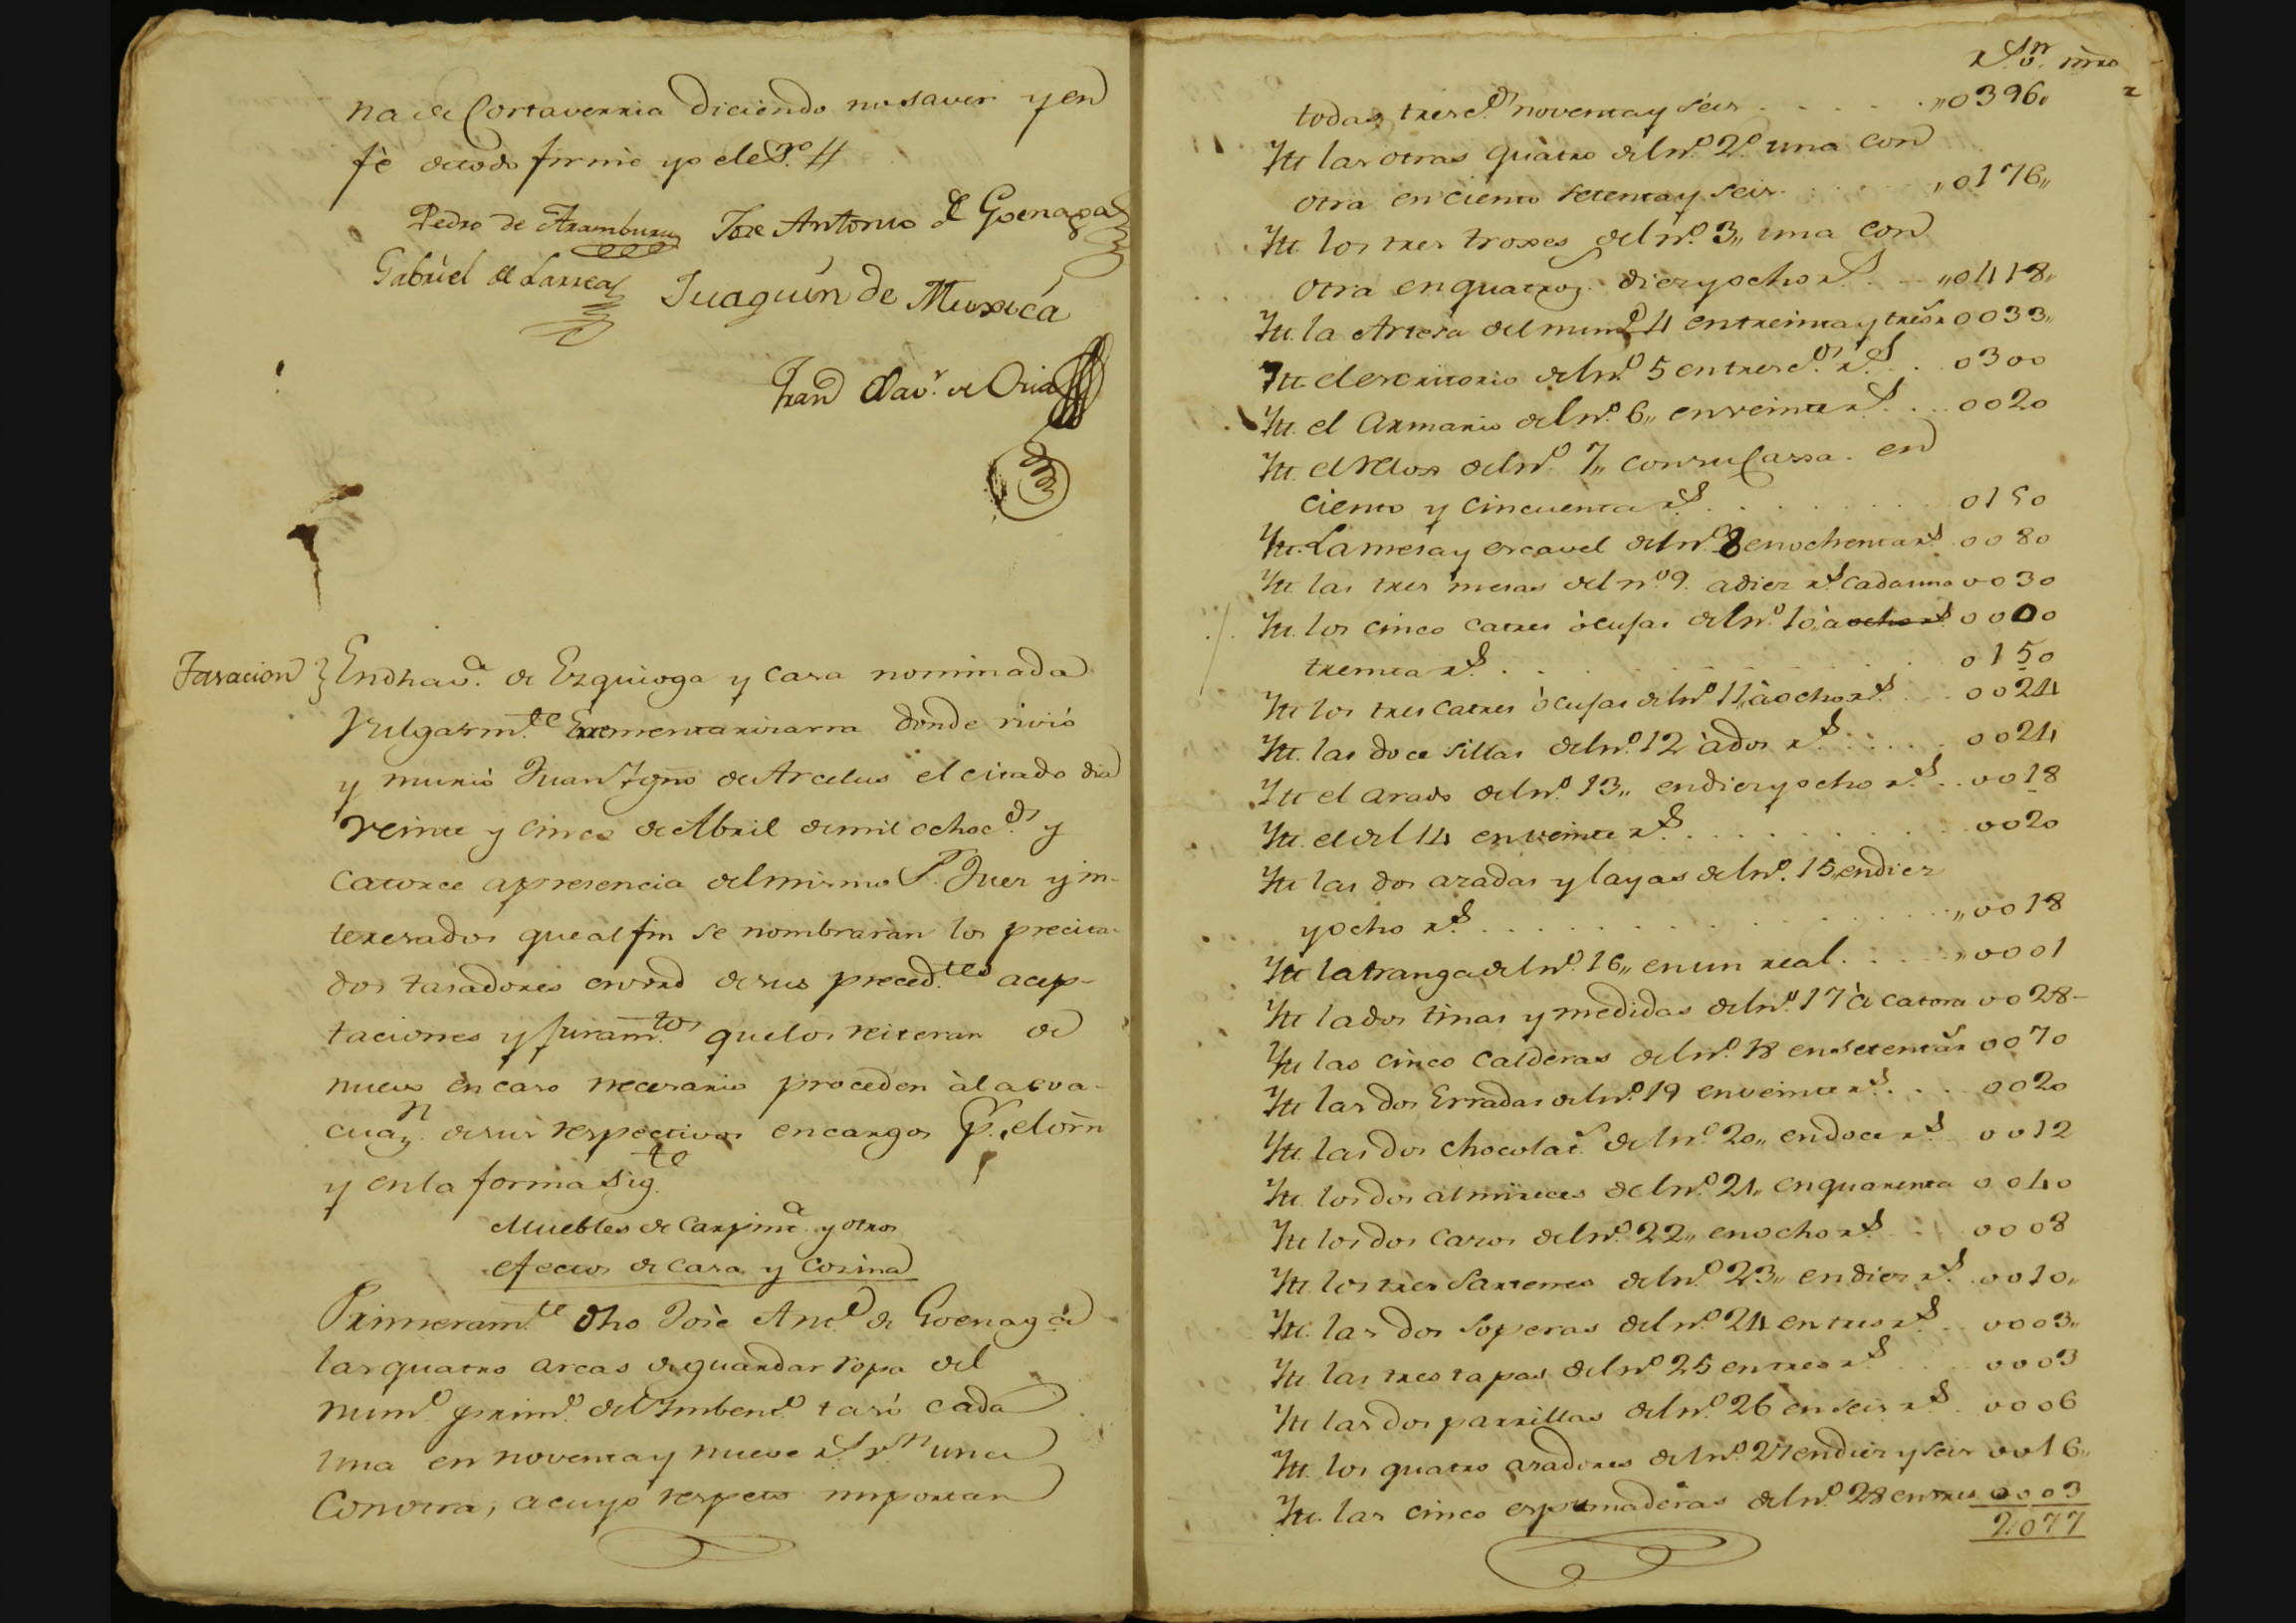 na de Cortaverria diciendo no saver y en
fè de todo firmè yo el es.no //
Pedro de Aramburu Jose Antonio de Goenaga
Gabriel de Larrea
Juaquin de Muxica
Fran.co Xav.r de Oria
Tasacion
En dha v.a de Ezquioga y casa nominada
vulgarm.te donde vivió
y murió Juan Ign.o de Arcelus el citado dia
veinte y cinco de Abril de mil ochoc.os y
catorce a presencia del mismo S.r Juez y in-
teresados que al fin se nombraràn los precita-
dos tasadores en vrd de sus preced.tes acep-
taciones y juram.tos que los reiteran de
nuevo en caso necesario proceden à la eva-
cua.n de sus respectivos encargos p.r el orn
y en la forma sig.te
Muebles de Carpint.a y otros
efectos de casa y cosina
Primeram.te dho Josè Ant.o de Goenaga
las quatro arcas de guardar ropa del
num.o prim.o del Imbent.o tasó cada
una en noventa y nueve r.s v.n una
con otra, a cuyo respeto importan
r.s v.n mrs
todas tresc.os noventa y seis ,,0396,,
2
Itt las otras quatro del n.o 2.o una con
otra en ciento setenta y seis ,,0176,,
Itt. los tres troxes del n.o 3,, una con
otra en quatroz. diez y ocho r.s ,,0418,,
Itt. la Artesa del num.o 4 en treinta y tres r.s 0033,,
Itt el escritorio del n.o 5 en tresc.os r.s 0300
Itt. el Armario del n.o 6,, en veinte r.s 0020
Itt. el relox del n.o 7,, con su Caxa en
ciento y cincuenta r.s 0150
Itt. La mesa y escavel del n.o 8 en ochenta r.s 0080
Itt. las tres mesas del n.o 9 a diez r.s cada una 0030
Itt. los cinco catres ò cujas del n.o 10,, à ocho r.s 0000
treinta r.s 0150
Itt los tres catres ò cujas del n.o 11,, à ocho r.s 0024
Itt. las doce sillas del n.o 12 à dos r.s 0024
Itt el arado del n.o 13,, en diez y ocho r.s 0018
Itt. el del 14 en veinte r.s 0020
Itt las dos azadas y layas del n.o 15,, en diez
y ocho r.s ,,0018
Itt la tranga del n.o 16,, en un real ,,0001
Itt la dos tinas y medidas del n.o 17 à catorce 0028-
Itt las cinco calderas del n.o 18 en setenta r.s 0070
Itt las dos Erradas del n.o 19 en veinte r.s 0020
Itt. las dos chocolat.s del n.o 20,, en doce r.s 0012
Itt. los dos almireces del n.o 21,, en quarenta 0040
Itt los dos cazos del n.o 22,, en ocho r.s 0008
Itt los tres sartenes del n.o 23,, en diez r.s 0010,,
Itt. las dos soperas del n.o 24 en tres r.s 0003,,
Itt. las tres tapas del n.o 25 en tres r.s 0003
Itt las dos parrillas del n.o 26 en seis r.s 0006
Itt. los quatro asadores del n.o 27 en diez y seis 0016,,
Itt. las cinco espumaderas del n.o 28 en tres 0003
2,077